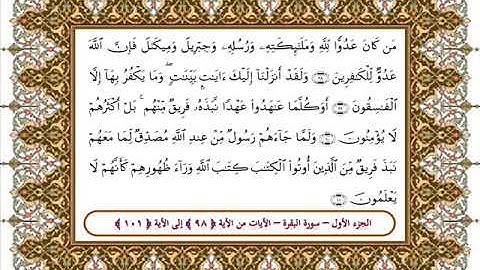 مَن كَانَ عَدُوًّا لِّلَّهِ وَمَلَٰٓئِكَتِهِۦ وَرُسُلِهِۦ وَجِبْرِيلَ وَمِيكَىٰلَ فَإِنَّ ٱللَّهَ
عَدُوٌّ لِّلْكَٰفِرِينَ ﴿٩٨﴾ وَلَقَدْ أَنزَلْنَآ إِلَيْكَ ءَايَٰتٍۭ بَيِّنَٰتٍ ۖ وَمَا يَكْفُرُ بِهَآ إِلَّا
ٱلْفَٰسِقُونَ ﴿٩٩﴾ أَوَكُلَّمَا عَٰهَدُوا۟ عَهْدًا نَّبَذَهُۥ فَرِيقٌ مِّنْهُم ۚ بَلْ أَكْثَرُهُمْ
لَا يُؤْمِنُونَ ﴿١٠٠﴾ وَلَمَّا جَآءَهُمْ رَسُولٌ مِّنْ عِندِ ٱللَّهِ مُصَدِّقٌ لِّمَا مَعَهُمْ
نَبَذَ فَرِيقٌ مِّنَ ٱلَّذِينَ أُوتُوا۟ ٱلْكِتَٰبَ كِتَٰبَ ٱللَّهِ وَرَآءَ ظُهُورِهِمْ كَأَنَّهُمْ لَا
يَعْلَمُونَ ﴿١٠١﴾
الجزء الأول – سورة البقرة – الآيات من الآية ﴿ ٩٨ ﴾ إلى الآية ﴿ ١٠١ ﴾